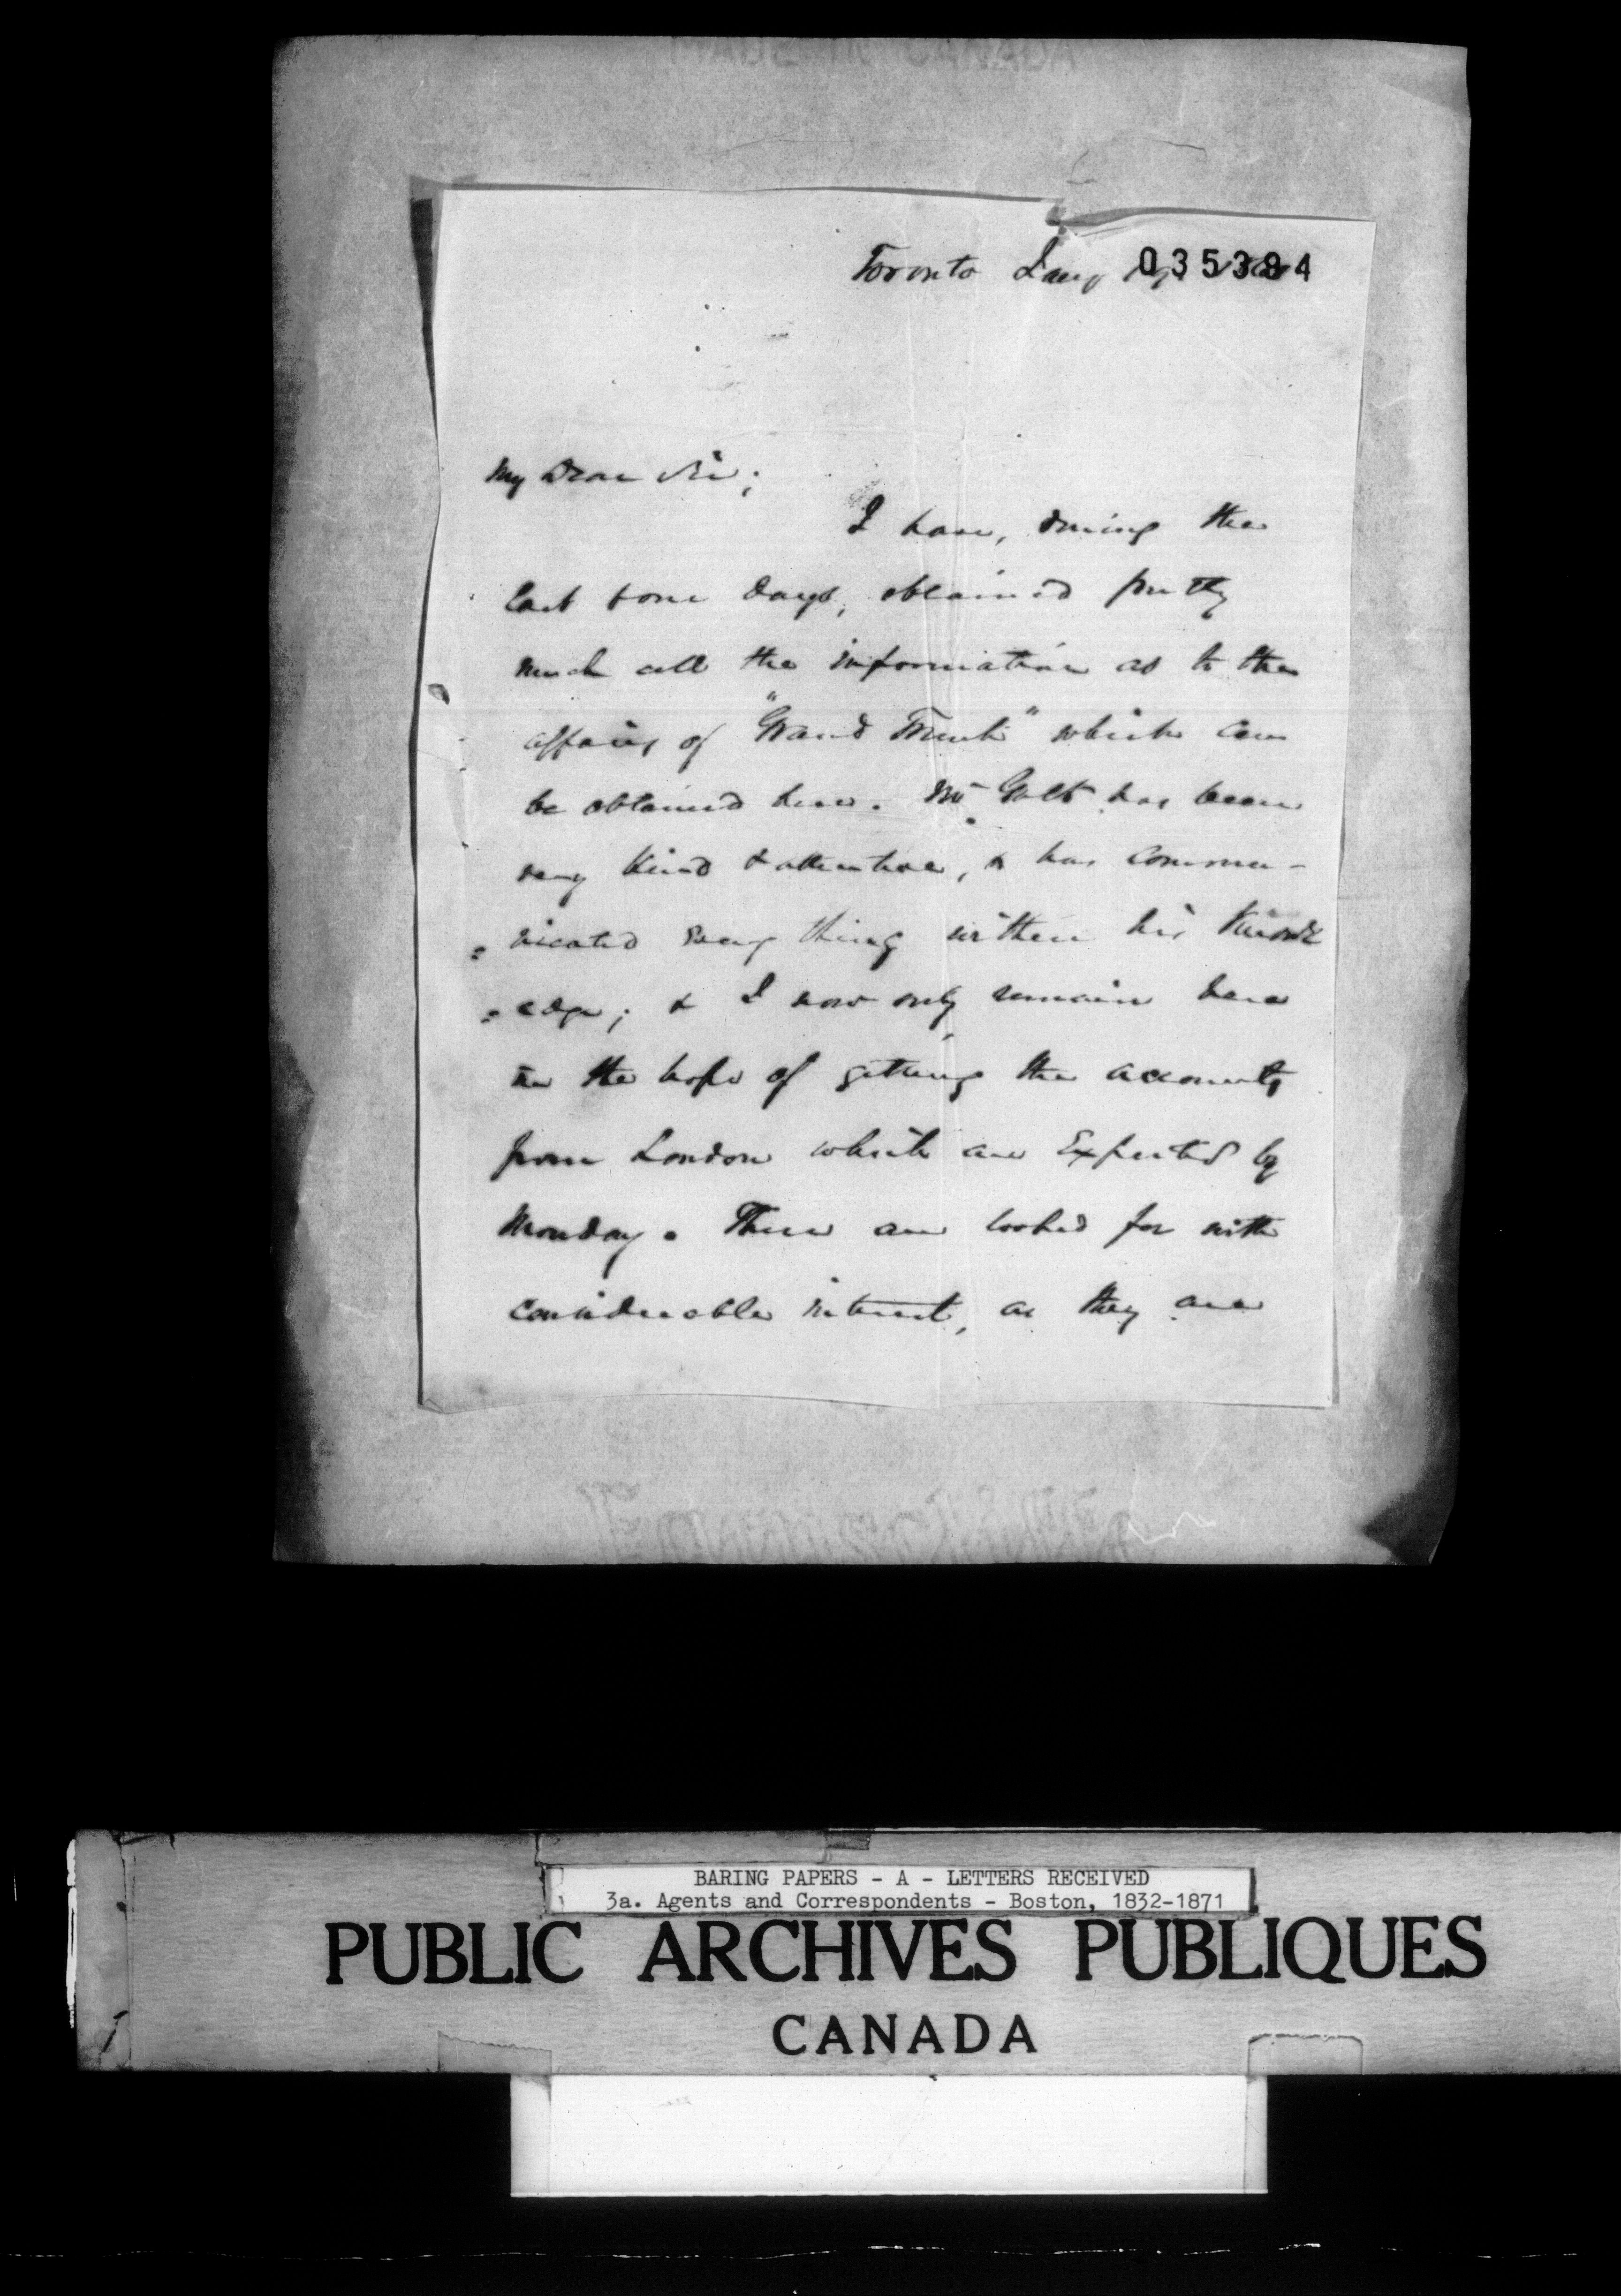 Toronto Jany 19
035394
My Dear Sir;
I have, during the
last four days, obtained pretty
much all the information as to the
affairs of "Grand Trunk" which can
be obtained here. Mr Galt has been
very kind & attentive, & has commu-
=nicated every thing within his knowl
=edge; & I now only remain here
in the hope of getting the accounts
from London which are expected by
Monday. These are looked for with
considerable interest, as they are
BARING PAPERS - A - LETTERS RECEIVED
3a. Agents and Correspondents - Boston, 1832-1871
PUBLIC ARCHIVES PUBLIQUES
CANADA